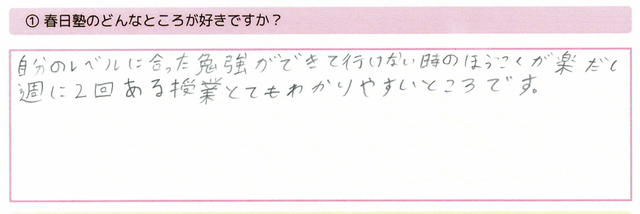 ① 春日塾のどんなところが好きですか？
自分のレベルに合った勉強ができて行けない時のほうこくが楽だし
週に2回ある授業とてもわかりやすいところです。